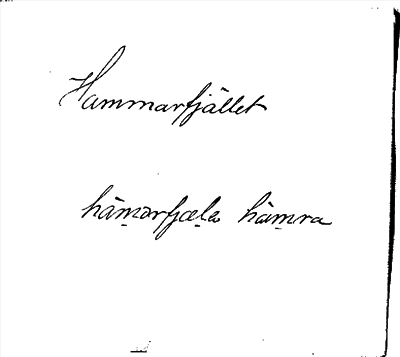 Hammarfjället
hàm̱arfjæḻa hàm̱ra